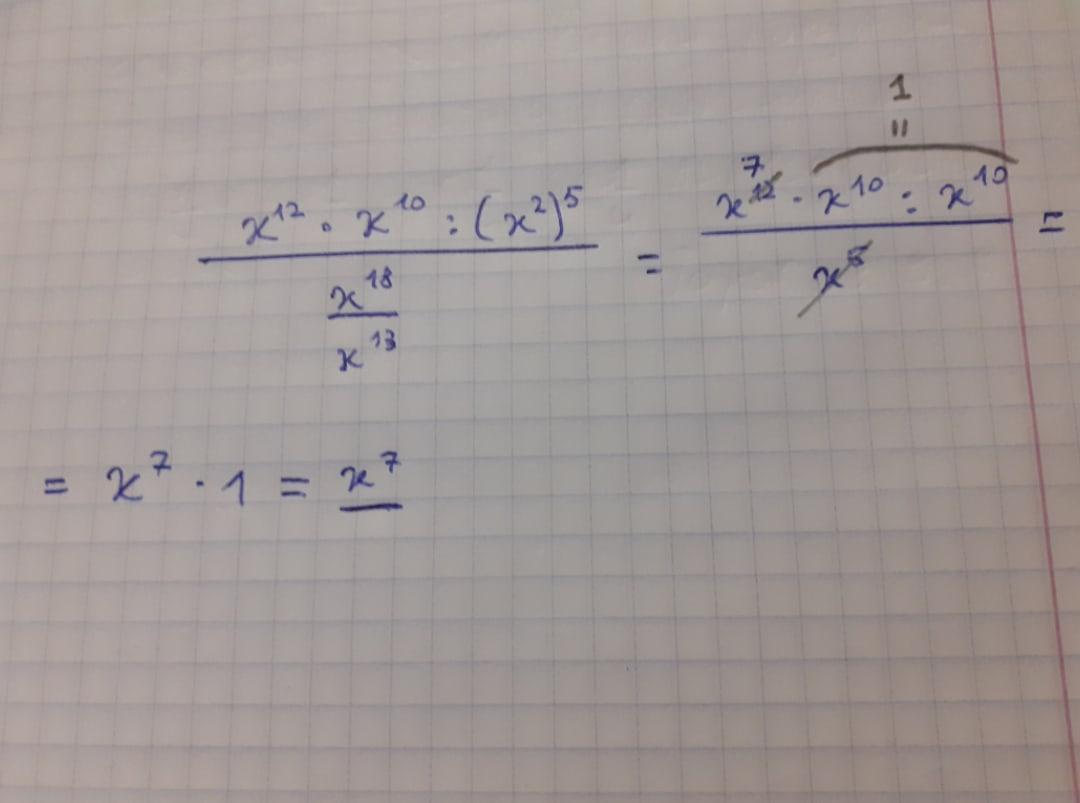 1
=
7
x¹² · x¹⁰ : (x²)⁵ / (x¹⁸ / x¹³) = x¹² · x¹⁰ : x¹⁰ / x⁵ =
= x⁷ · 1 = x⁷